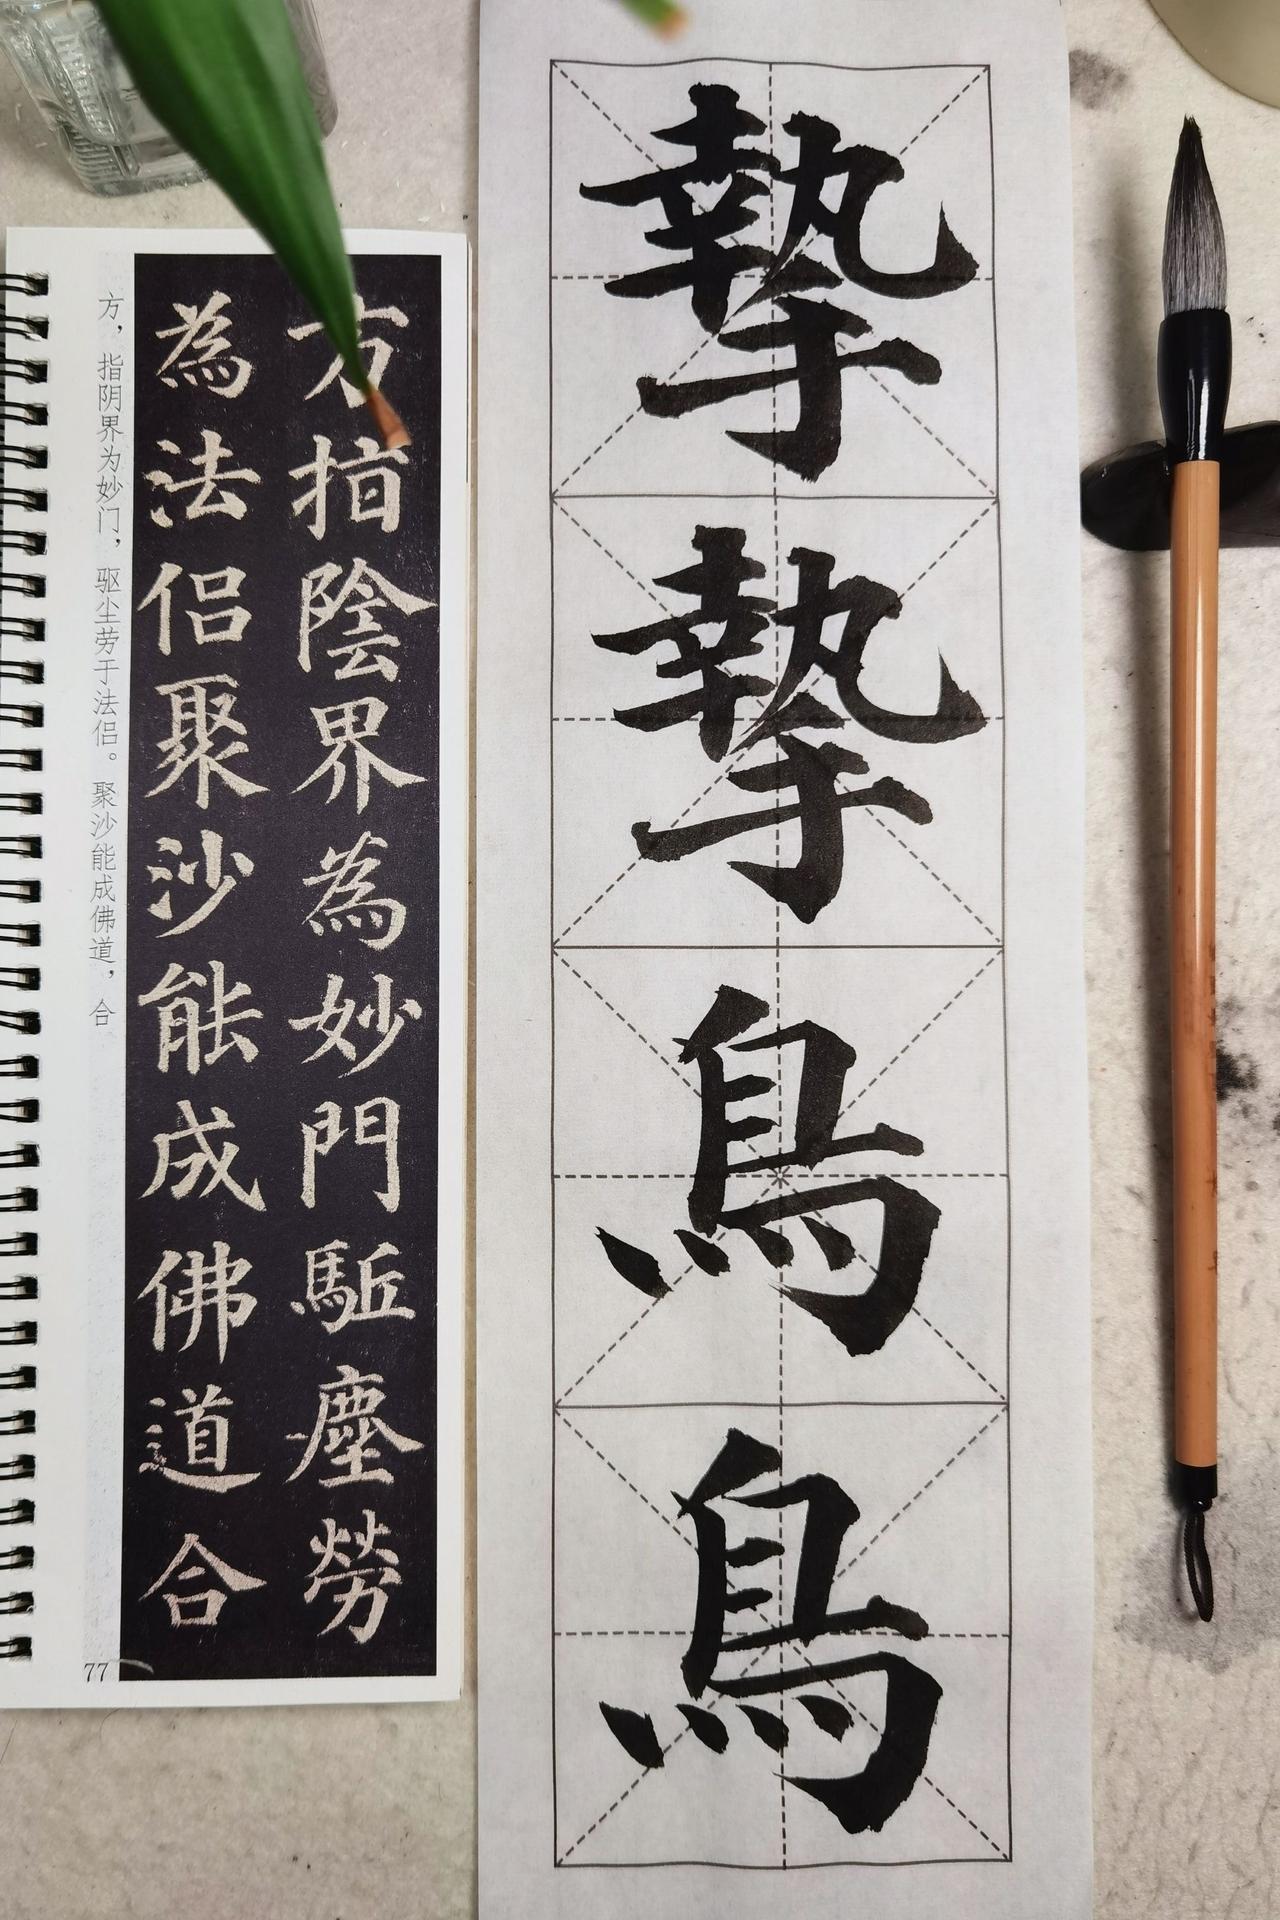 摯摯鳥鳥
方指陰界為妙門駈塵勞
為法侶聚沙能成佛道合
方，指阴界为妙门，驱尘劳于法侣。聚沙能成佛道，合
77